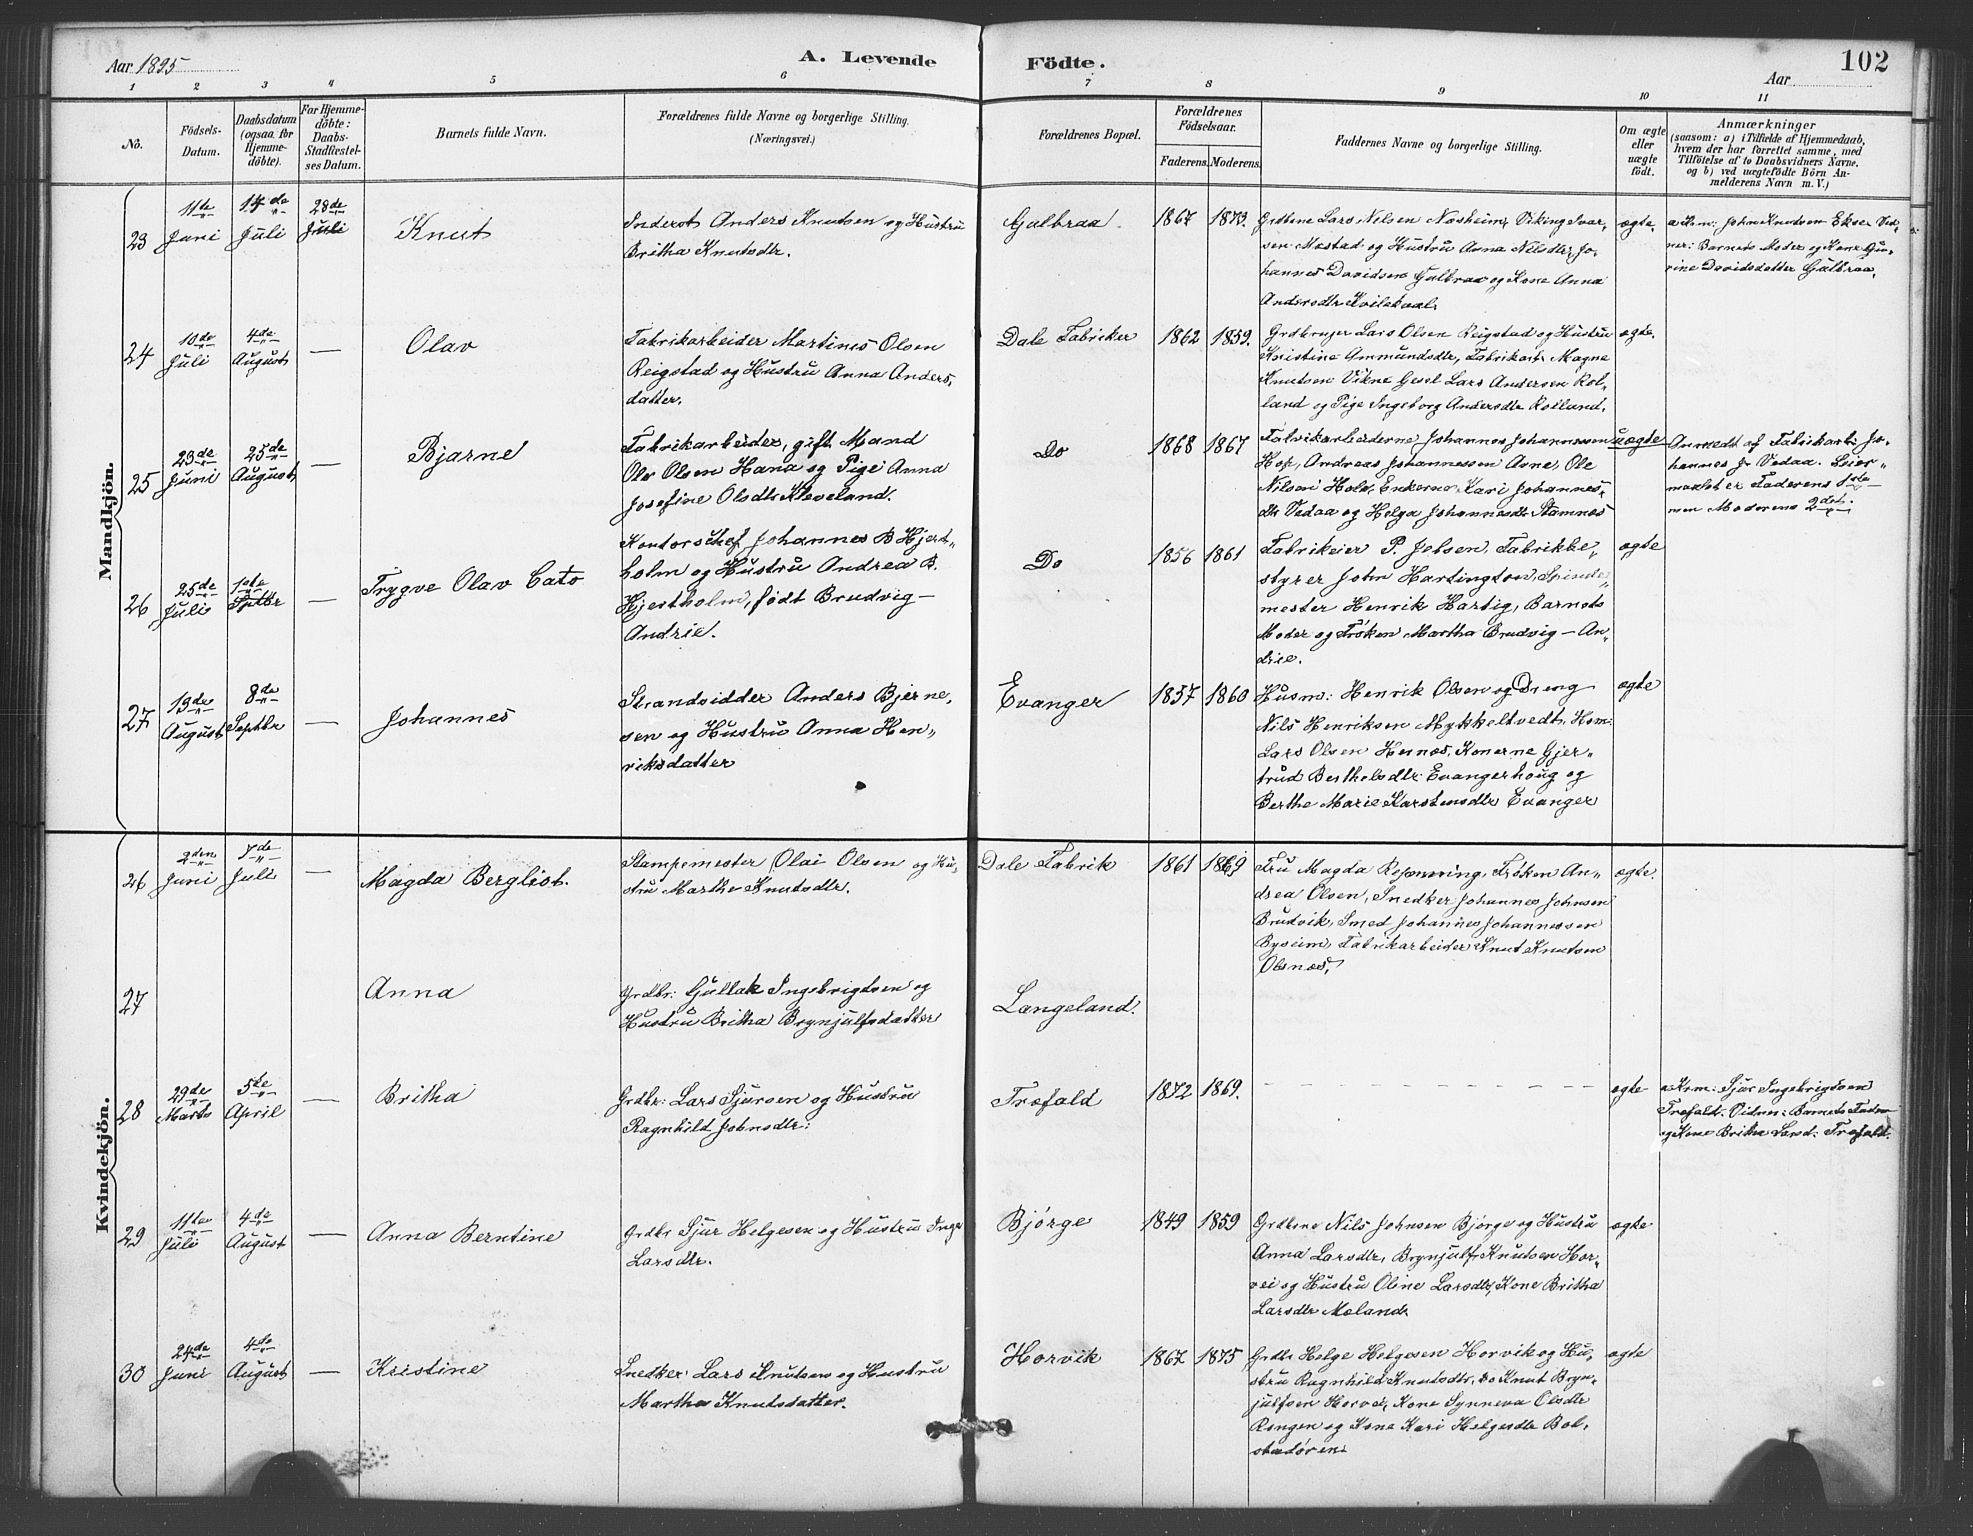 Aar 1895
A. Levende
Födte.
Aar
102
1 2 3 4 5 6 7 8 9 10 11
No.
Födsels-
Datum.
Daabsdatum
(ogsaa for
Hjemme-
döbte).
For Hjemme-
döbte:
Daabs-
Stadfæstel-
ses Datum.
Barnets fulde Navn.
Forældrenes fulde Navne og borgerlige Stilling.
(Næringsvei.)
Forældrenes Bopæl.
Forældrenes
Födselsaar.
Faderens.
Moderens.
Faddernes Navne og borgerlige Stilling.
Om ægte
eller
uægte
födt.
Anmærkninger
(saasom: a) i Tilfælde af Hjemmedaab,
hvem der har forrettet samme, med
Tilföielse af to Daabsvidners Navne,
og b) ved uægtefödte Börn An-
melderens Navn m. V.)
Mandkjön.
23
11te
Juni
14de
Juli
28de
Juli
Knut
Inderst Anders Knutsen og Hustru
Britha Knutsdtr.
Gulbraa
1867
1873.
Grdbrne Lars Nilsen Nosheim, Viking Ivar-
sen Mæstad og Hustru Anna Nilsdtr, Jo-
hannes Davidsen Gulbraa og Kone Anna
Andersdtr Kvilekval.
ægte.
a. Krm: John Knudsen Ekse. Vid-
ner: Barnets Moder og Kone Gu-
rine Davidsdatter Gulbraa.
24
10de
Juli
4de
August
—
Olav
Fabrikarbeider Martines Olsen
Reigstad og Hustru Anna Anders-
datter.
Dale Fabriker
1862
1859.
Grdbruger Lars Olsen Reigstad og Hustru
Kristine Ammundsdtr, Fabrikarb. Magne
Knutsen Vikne Gesel Lars Andersen Rol-
land og Pige Ingeborg Andersdtr Rolland.
ægte.
25
23de
Juni
25de
August
—
Bjarne
Fabrikarbeider, gift Mand
Olv Olsen Hana og Pige Anna
Josefine Olsdtr Kleveland.
Do
1868
1867
Fabrikarbeiderne Johannes Johannessen
Hop, Andreas Johannessen Arne, Ole
Nilsen Holv, Enkerne Kari Johannes-
dtr Vedaa og Helga Johannesdtr Stamnes
uægte
Anmeldt af Fabrikarb: Jo-
hannes J. Vedaa. Leier-
maalet er Faderens 1ste
men Moderens 2det.
26
25de
Juli
1ste
Septbr
—
Trygve Olav Cato
Kontorschef Johannes B Hjert-
holm og Hustru Andrea B.
Hjertholm, født Brudvig—
Andrie.
Do
1856
1861
Fabrikeier P. Jebsen, Fabrikbe-
styrer John Hartington, Spinde-
mester Henrik Hartig, Barnets
Moder og Frøken Martha Brudvig—An-
drie.
ægte
27
13de
August
8de
Septbr
—
Johannes
Strandsidder Anders Bjerne-
sen og Hustru Anna Hen-
riksdatter
Evanger
1857
1860
Husm: Henrik Olsen og Dreng
Nils Henriksen Mykkeltvedt, Hsm:
Lars Olsen Hernes, Konerne Gjer-
trud Berthelsdtr Evangerhoug og
Berthe Marie Karstensdtr Evanger
ægte
Kvindekjön.
26
2den
Juni
7de
Juli
—
Magda Bergliot.
Stampemester Olai Olsen og Hu-
stru Marthe Knutsdtr.
Dale Fabrik
1861
1869
Fru Magda Rosnæring, Frøken An-
drea Olsen, Snedker Johannes Johnsen
Brudvik, Smed Johannes Johannessen
Byseim, Fabrikarbeider Knut Knutsen
Olsnæs.
ægte.
27
Anna
Grdbr: Gullak Ingebrigtsen og
Hustru Britha Brynjulfsdatter
Langeland.
28
29de
Marts
5te
April
—
Britha
Grdbr: Lars Sjursen og Hustru
Ragnhild Johnsdtr:
Træfald
1872
1869.
— — — — — — —
ægte
a. Krm: Sjur Ingebrigtsen
Træfald. Vidnr: Barnets Fader
og Kone Britha Larsd: Træfald.
29
11te
Juli
4de
August
—
Anna Berntine
Grdbr Sjur Helgesen og Hustru Inga
Larsdtr.
Bjørge
1849
1859
Grdbrne Nils Johnsen Bjørge og Hustru
Anna Larsdtr, Brynjulf Knutsen Hor-
vei og Hustru Oline Larsdtr, Kone Britha
Larsdtr Mæland.
ægte
30
24de
Juni
4de
August
—
Kristine
Snedker Lars Knutsen og Hustru
Martha Knutsdatter.
Horvik
1867
1875
Grdbr Helge Helgesen Horvik og Hu-
stru Ragnhild Knutsdtr, Do Knut Bryn-
julfsen Horvei, Kone Synneva Olsdtr
Rongen og Kone Kari Helgesdtr Bol-
stadøren.
ægte